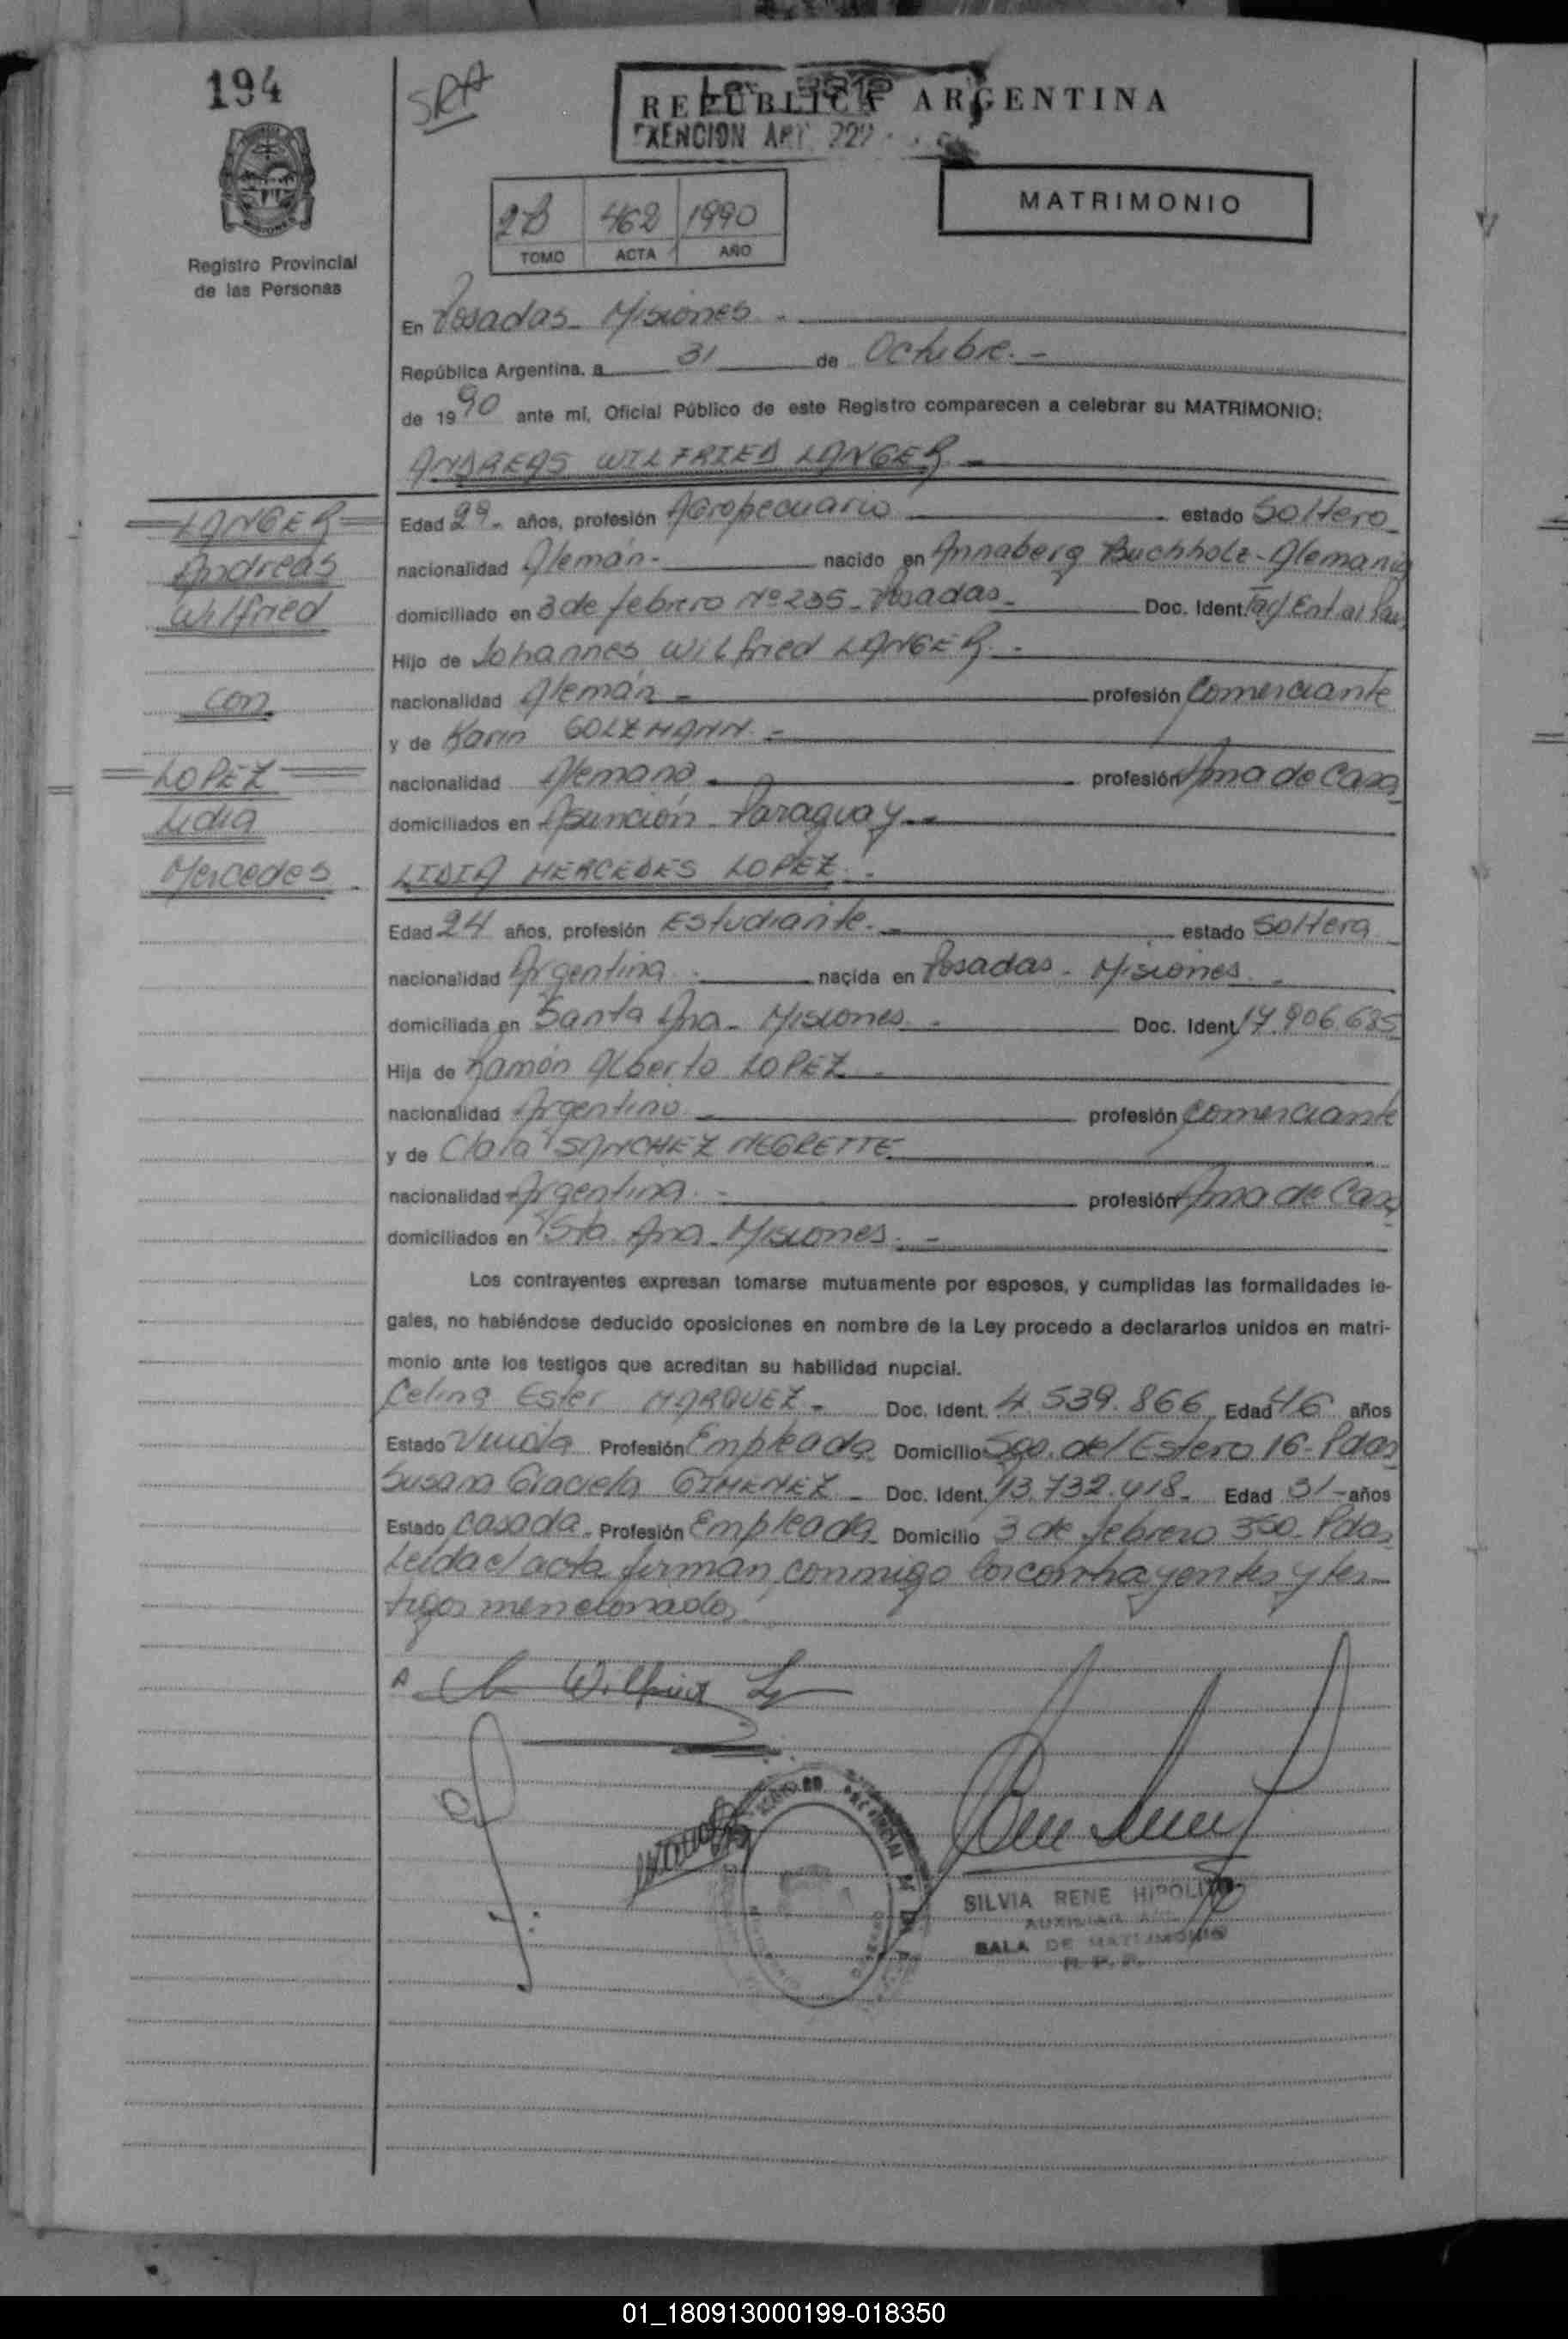 194
SRA
REPUBLICA ARGENTINA
EXENCION ART. 222
MATRIMONIO
2B 462 1990
TOMO ACTA AÑO
Registro Provincial
de las Personas
En Posadas - Misiones. -
República Argentina, a 31 de Octubre. -
de 1990 ante mí, Oficial Público de este Registro comparecen a celebrar su MATRIMONIO:
ANDREAS WILFRIED LANGER. -
LANGER
Andreas
Wilfried
con
LOPEZ
Lidia
Mercedes
Edad 29 - años, profesión Agropecuario estado Soltero
nacionalidad Alemán - nacido en Annaberg Buchholz - Alemania
domiciliado en 3 de febrero Nº 235 - Posadas - Doc. Ident.
Hijo de Johannes Wilfried LANGER. -
nacionalidad Alemán - profesión Comerciante
y de Karin GOLZMANN. -
nacionalidad Alemana. profesión Ama de Casa
domiciliados en Asunción - Paraguay. -
LIDIA MERCEDES LOPEZ. -
Edad 24 años, profesión Estudiante. - estado Soltera
nacionalidad Argentina. nacida en Posadas - Misiones -
domiciliada en Santa Ana - Misiones. - Doc. Ident. 17.906.685
Hija de Ramón Alberto LOPEZ. -
nacionalidad Argentino. - profesión Comerciante
y de Clara SANCHEZ NEGRETTE
nacionalidad Argentina. - profesión Ama de Casa
domiciliados en Sta. Ana - Misiones. -
Los contrayentes expresan tomarse mutuamente por esposos, y cumplidas las formalidades le-
gales, no habiéndose deducido oposiciones en nombre de la Ley procedo a declararlos unidos en matri-
monio ante los testigos que acreditan su habilidad nupcial.
Celina Ester MARQUEZ - Doc. Ident. 4.539.866 Edad 46 años
Estado Viuda Profesión Empleada Domicilio Sgo. del Estero 16 - Pdas
Susana Graciela GIMENEZ - Doc. Ident. 13.732.418 - Edad 31 - años
Estado Casada - Profesión Empleada Domicilio 3 de febrero 350 - Pdas
Leída el acta firman conmigo los contrayentes y tes-
tigos mencionados.
A Wilfried
SILVIA RENE HIPOLITO
AUXILIAR
SALA DE MATRIMONIO
R. P. P.
01_180913000199-018350